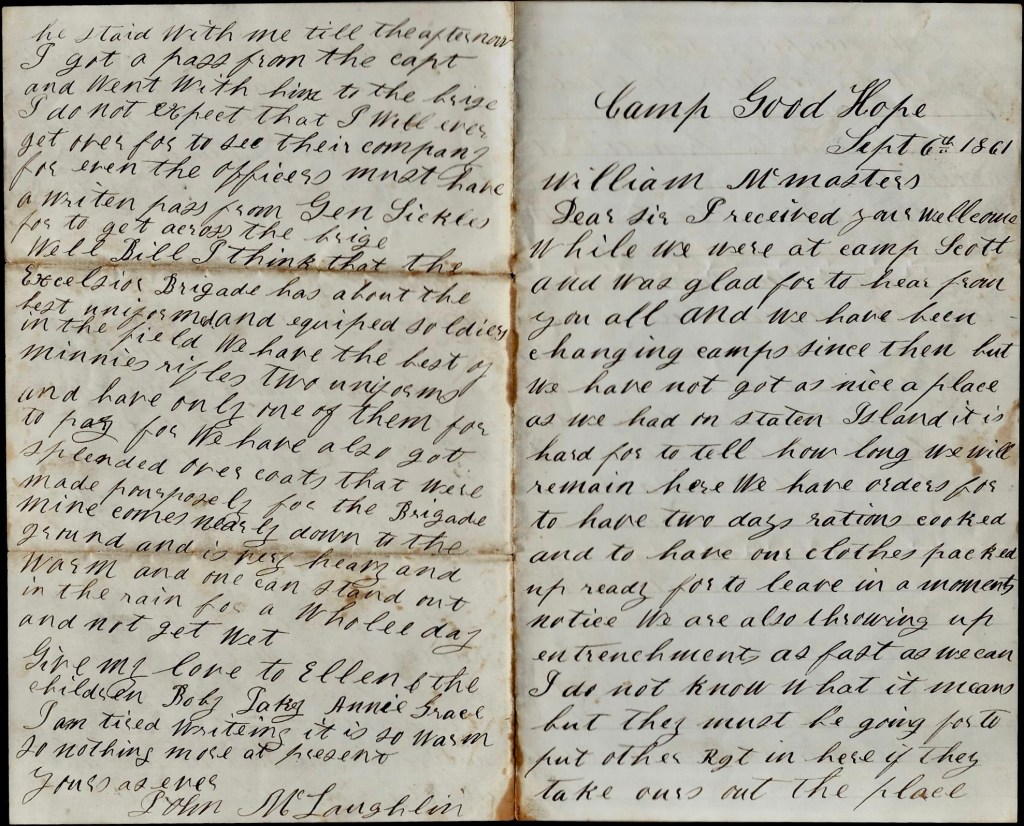 Camp Good Hope
Sept 6th 1861
William McMasters
Dear Sir I received your wellcome
While we were at camp Scott
and was glad for to hear from
you all and we have been
changing camps since then but
we have not got as nice a place
as we had on Staten Island it is
hard for to tell how long we will
remain here We have orders for
to have two days rations cooked
and to have our clothes packed
up ready for to leave in a moments
notice We are also throwing up
entrenchments as fast as we can
I do not know what it means
but they must be going for to
put other Rgt in here if they
take ours out the place
he staid with me till the afternoon
I got a pass from the capt
and went with him to the brige
I do not expect that I will ever
get over for to see their company
for even the officers must have
a writen pass from Gen Sickles
for to get across the brige
Well Bill I think that the
Excelsior Brigade has about the
best uniformed and equiped soldiers
in the field We have the best of
minnies rifles two uniforms
and have only one of them for
to pay for We have also got
splended over coats that were
made pourposely for the Brigade
mine comes nearly down to the
ground and is very heavy and
warm and one can stand out
in the rain for a wholee day
and not get wet
Give my love to Ellen & the
children Boby Jakey Annie Grace
I am tired writeing it is so warm
so nothing more at present
yours as ever
John McLaughlin